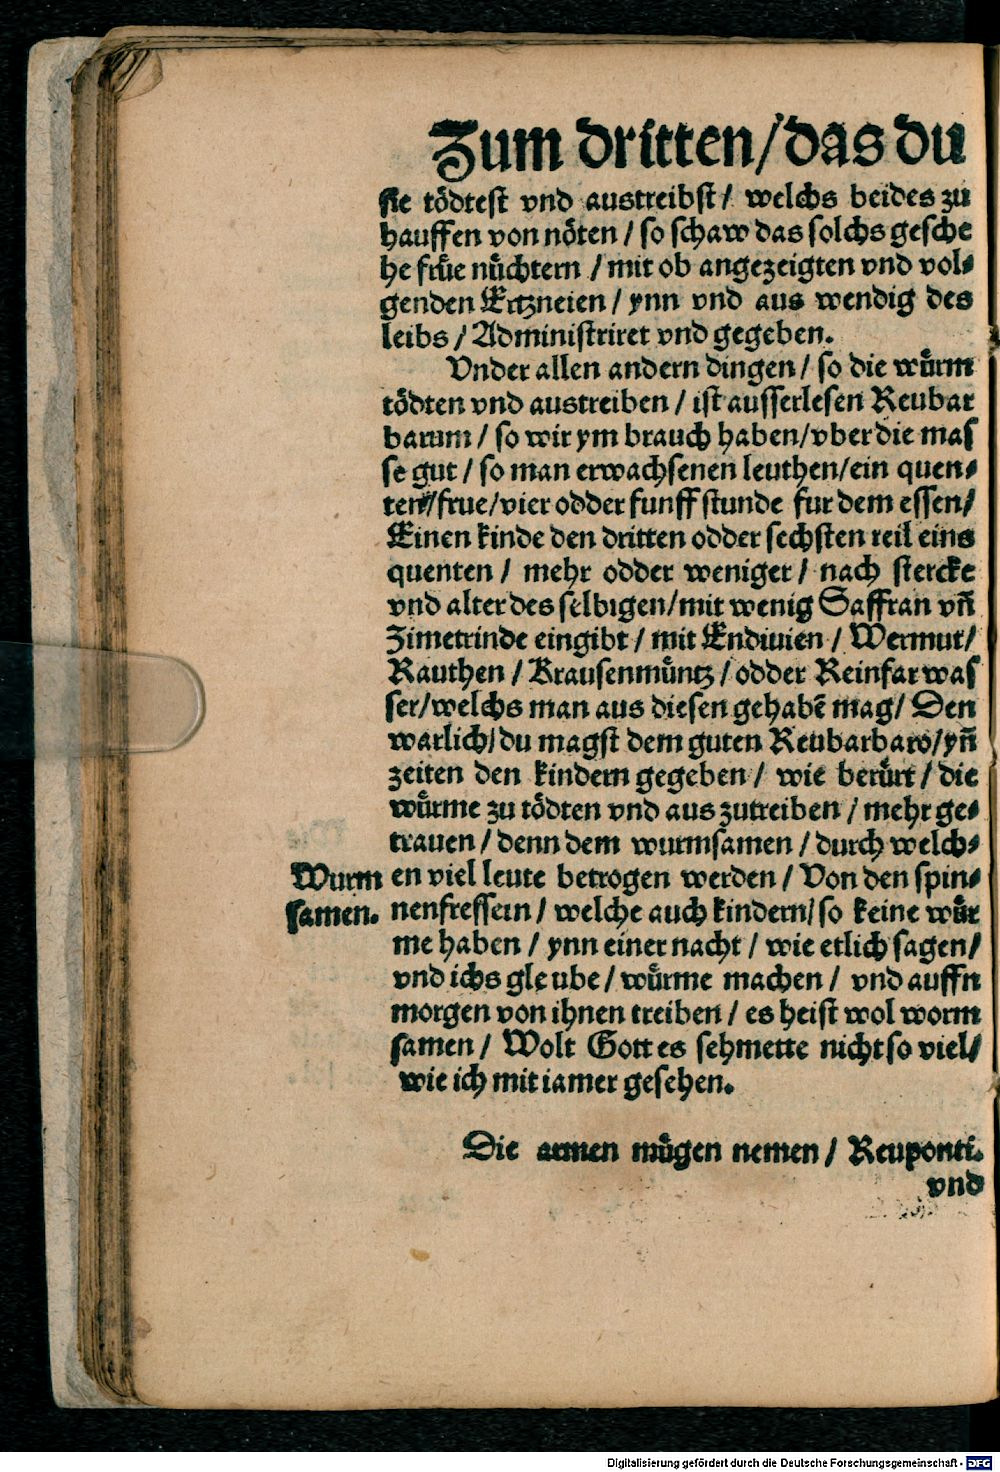 Zum dritten/das du
sie tödtest vnd austreibst/ welchs beides zu
hauffen von nöten/ so schaw das solchs gesche
he früe nüchtern/ mit ob angezeigten vnd vol⸗
genden Ertzneien/ ynn vnd aus wendig des
leibs/ Administriret vnd gegeben.
Vnder allen andern dingen/ so die würm
tödten vnd austreiben/ ist ausserlesen Reubar
barum/ so wir ym brauch haben/vber die mas
se gut/ so man erwachsenen leuthen/ein quen⸗
ten/frue/vier odder funff stunde fur dem essen/
Einen kinde den dritten odder sechsten teil eins
quenten/ mehr odder weniger/ nach stercke
vnd alter des selbigen/mit wenig Saffran vñ
Zimetrinde eingibt/ mit Endiuien/ Wermut/
Rauthen/ Krausenmüntz/ odder Reinfar was
ser/welchs man aus diesen gehabē mag/ Den
warlich/du magst dem guten Reubarbaro/yñ
zeiten den kindern gegeben/ wie berürt/ die
würme zu tödten vnd aus zutreiben/ mehr ge⸗
trauen/ denn dem wurmsamen/ durch welch⸗
Wurm
samen.
en viel leute betrogen werden/ Von den spin⸗
nenfressern/ welche auch kindern/so keine wür
me haben/ ynn einer nacht/ wie etlich sagen/
vnd ichs gleube/ würme machen/ vnd auffn
morgen von ihnen treiben/ es heist wol worm
samen/ Wolt Gott es sehmette nicht so viel/
wie ich mit iamer gesehen.
Die armen mügen nemen/ Reuponti.
vnd
Digitalisierung gefördert durch die Deutsche Forschungsgemeinschaft - DFG